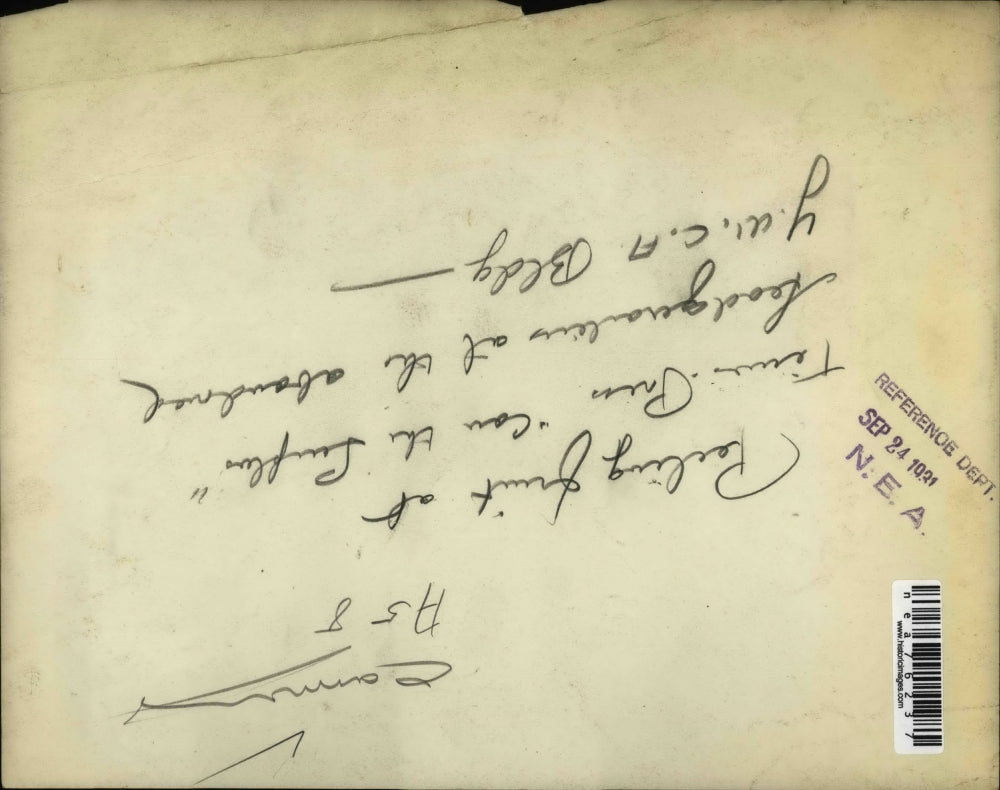 A58
Peeling fruit at
Times-Press "Can the Surplus"
Headquarters at the abandoned
Y.W.C.A Bldg —
REFERENCE DEPT.
SEP 24 1931
N.E.A.
nea76237
www.historicimages.com